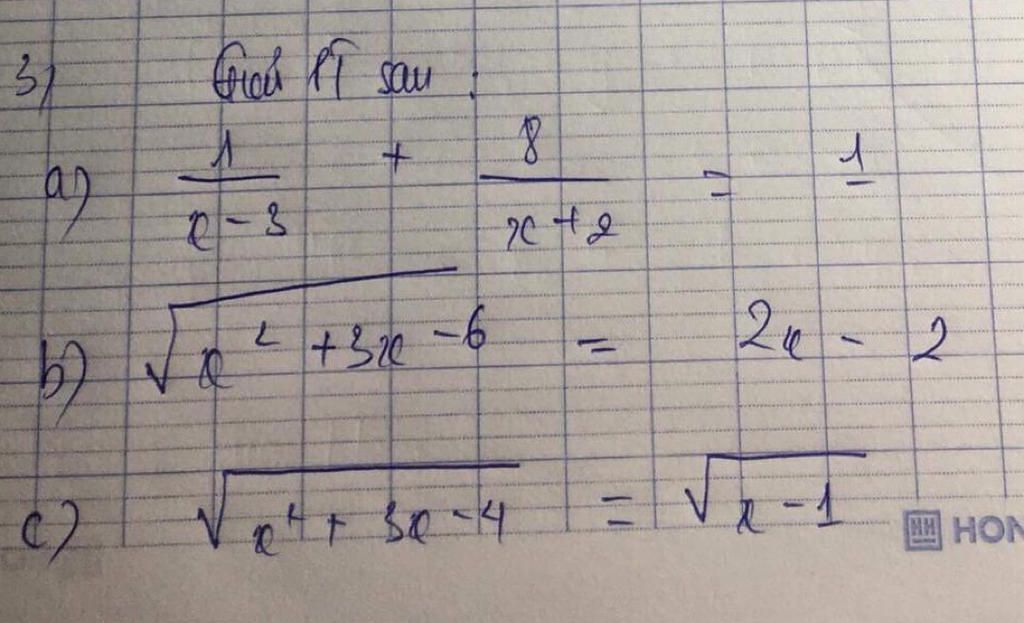 3) Giải PT sau :
a) 1/(x - 3) + 8/(x + 2) = 1
b) √(x² + 3x - 6) = 2x - 2
c) √(x² + 3x - 4) = √(x - 1)
HON